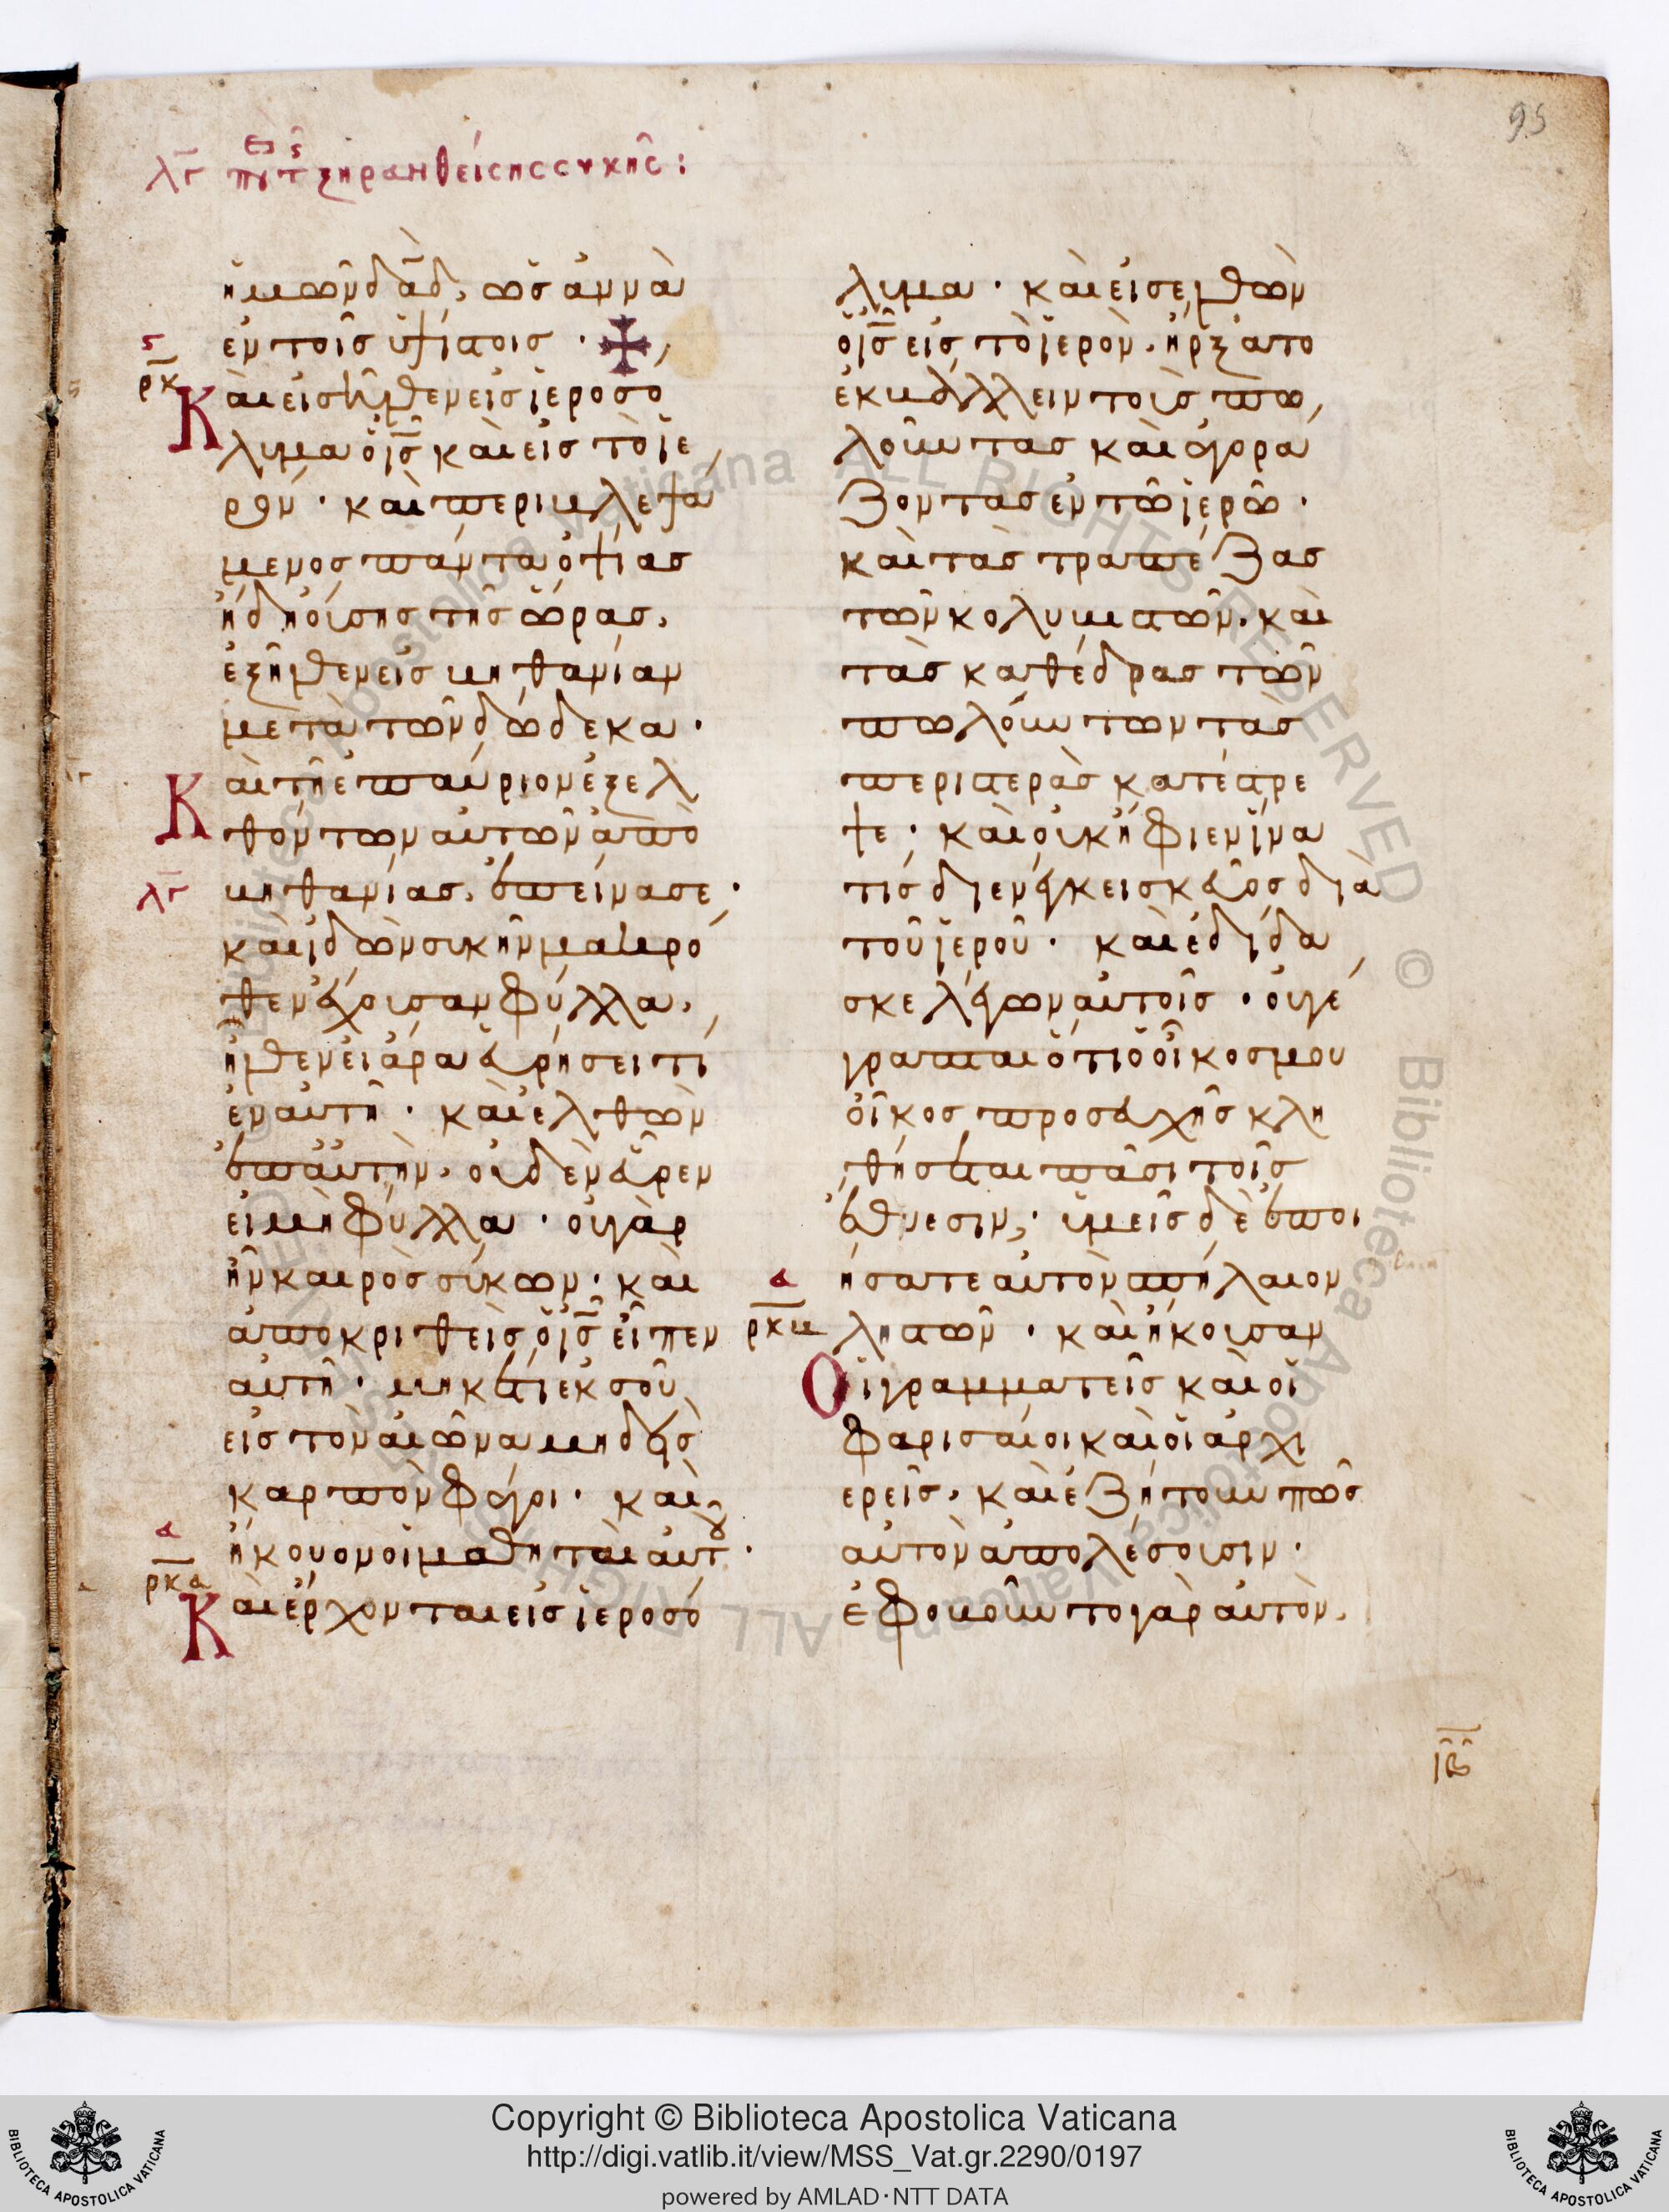 95
λγ περὶ τῆς ξηρανθείσης συκῆς:
ἡμῶν δᾱδ, ὡσἀννὰ
ἐν τοῖς ὑψίστοις .
ϛ
ρκ
Καὶ εἰσῆλθεν εἰς ἱεροσό
λυμα ὁ ις̄ καὶ εἰς τὸ ἱε
ρόν · καὶ περιβλεψά
μενος πάντα ὀψίας
ἤδη οὔσης τῆς ὥρας,
ἐξῆλθεν εἰς βηθανίαν
μετὰ τῶν δώδεκα ·
Καὶ τῆ ἐπαύριον ἐξελ
θόντων αὐτῶν ἀπὸ
λγ
βηθανίας, ἐπείνασε ·
καὶ ἰδὼν συκῆν μακρό
θεν ἔχουσαν φύλλα,
ἦλθεν εἰ ἄρα εὑρήσει τι
ἐν αὐτῆ · καὶ ἐλθὼν
ἐπ αὐτὴν, οὐδὲν εὗρεν
εἰ μὴ φύλλα · οὐ γὰρ
ἦν καιρὸς σύκων · καὶ
ἀποκριθεὶς ὁ ις̄ εἶπεν
αὐτῆ · μηκέτι ἐκ σοῦ
εἰς τὸν αἰῶνα μηδεὶς
καρπὸν φάγοι · καὶ
α
ρκα
ἤκουον οἱ μαθηταὶ αὐτοῦ ·
Καὶ ἔρχονται εἰς ἱεροσό
λυμα · καὶ εἰσελθὼν
ὁ ις̄ εἰς τὸ ἱερὸν, ἤρξατο
ἐκβάλλειν τοὺς πω
λοῦντας καὶ ἀγορά
ζοντας ἐν τῶ ἱερῶ ·
καὶ τὰς τραπέζας
τῶν κολυβιστῶν, καὶ
τὰς καθέδρας τῶν
πωλούντων τὰς
περιστερὰς κατέστρε
ψε · καὶ οὐκ ἤφιεν ἵνα
τις διενέγκει σκεῦος διὰ
τοῦ ἱεροῦ · καὶ ἐδίδα
σκε λέγων αὐτοῖς · οὐ γέ
γραπται ὅτι ὁ οἶκός μου
οἶκος προσευχῆς κλη
θήσεται πᾶσι τοῖς
ἔθνεσιν · ὑμεῖς δὲ ἐποι
ήσατε αὐτὸν σπήλαιον
α
ρκβ
ληστῶν · καὶ ἤκουσαν
Οἱ γραμματεῖς καὶ οἱ
φαρισαῖοι καὶ οἱ ἀρχι
ερεῖς, καὶ ἐζήτουν πῶς
αὐτὸν ἀπολέσουσιν ·
ἐφοβοῦντο γὰρ αὐτὸν,
ιβ
Copyright © Biblioteca Apostolica Vaticana
http://digi.vatlib.it/view/MSS_Vat.gr.2290/0197
powered by AMLAD·NTT DATA
BIBLIOTECA APOSTOLICA VATICANA
BIBLIOTECA APOSTOLICA VATICANA